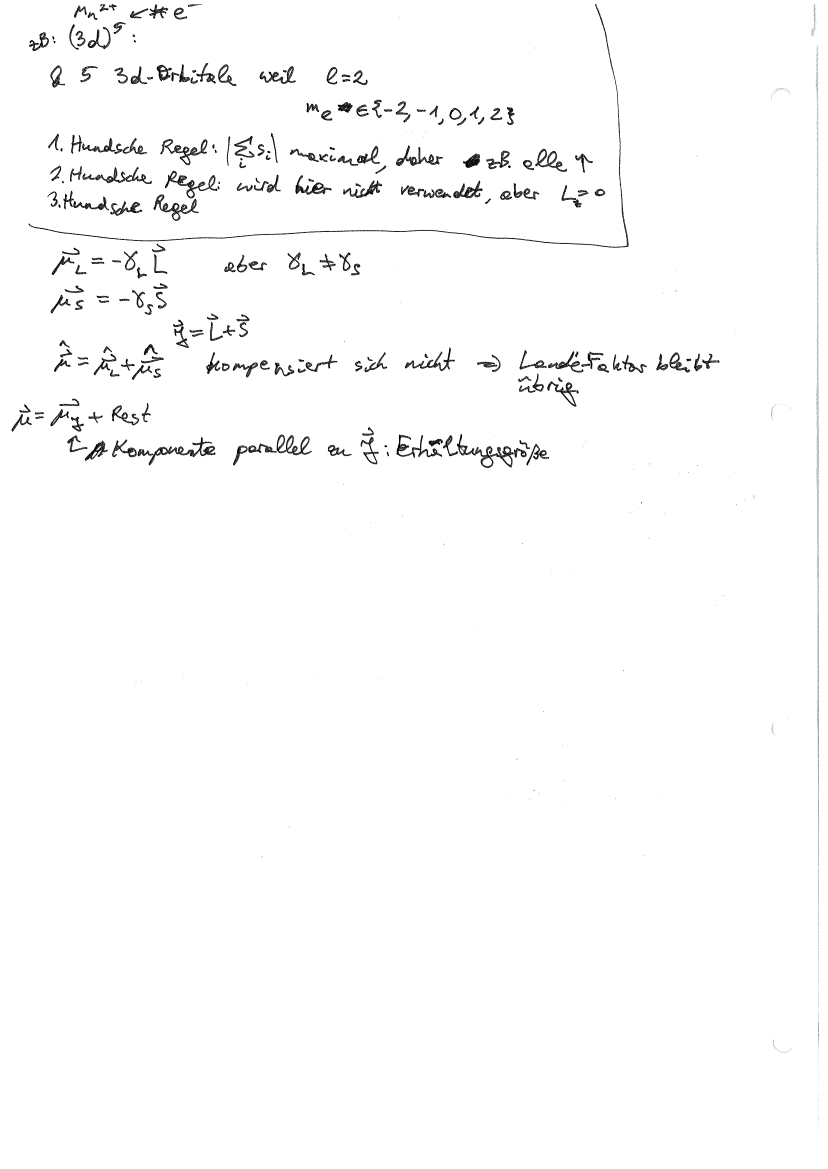 Mn²⁺ ← # e⁻
zB: (3d)⁵ :
5 3d-Orbitale weil l=2
mₑ ∈ {-2, -1, 0, 1, 2}
1. Hundsche Regel: |∑ᵢ sᵢ| maximal, daher zB. alle ↑
2. Hundsche Regel: wird hier nicht verwendet, aber L_z = 0
3. Hundsche Regel
μ⃗_L = -γ_L L⃗ aber γ_L ≠ γ_S
μ⃗_S = -γ_S S⃗
J⃗ = L⃗ + S⃗
μ̂⃗ = μ̂⃗_L + μ̂⃗_S kompensiert sich nicht ⇒ Landé-Faktor bleibt
übrig
μ⃗ = μ⃗_J + Rest
↑ Komponente parallel zu J⃗ : Erhaltungsgröße